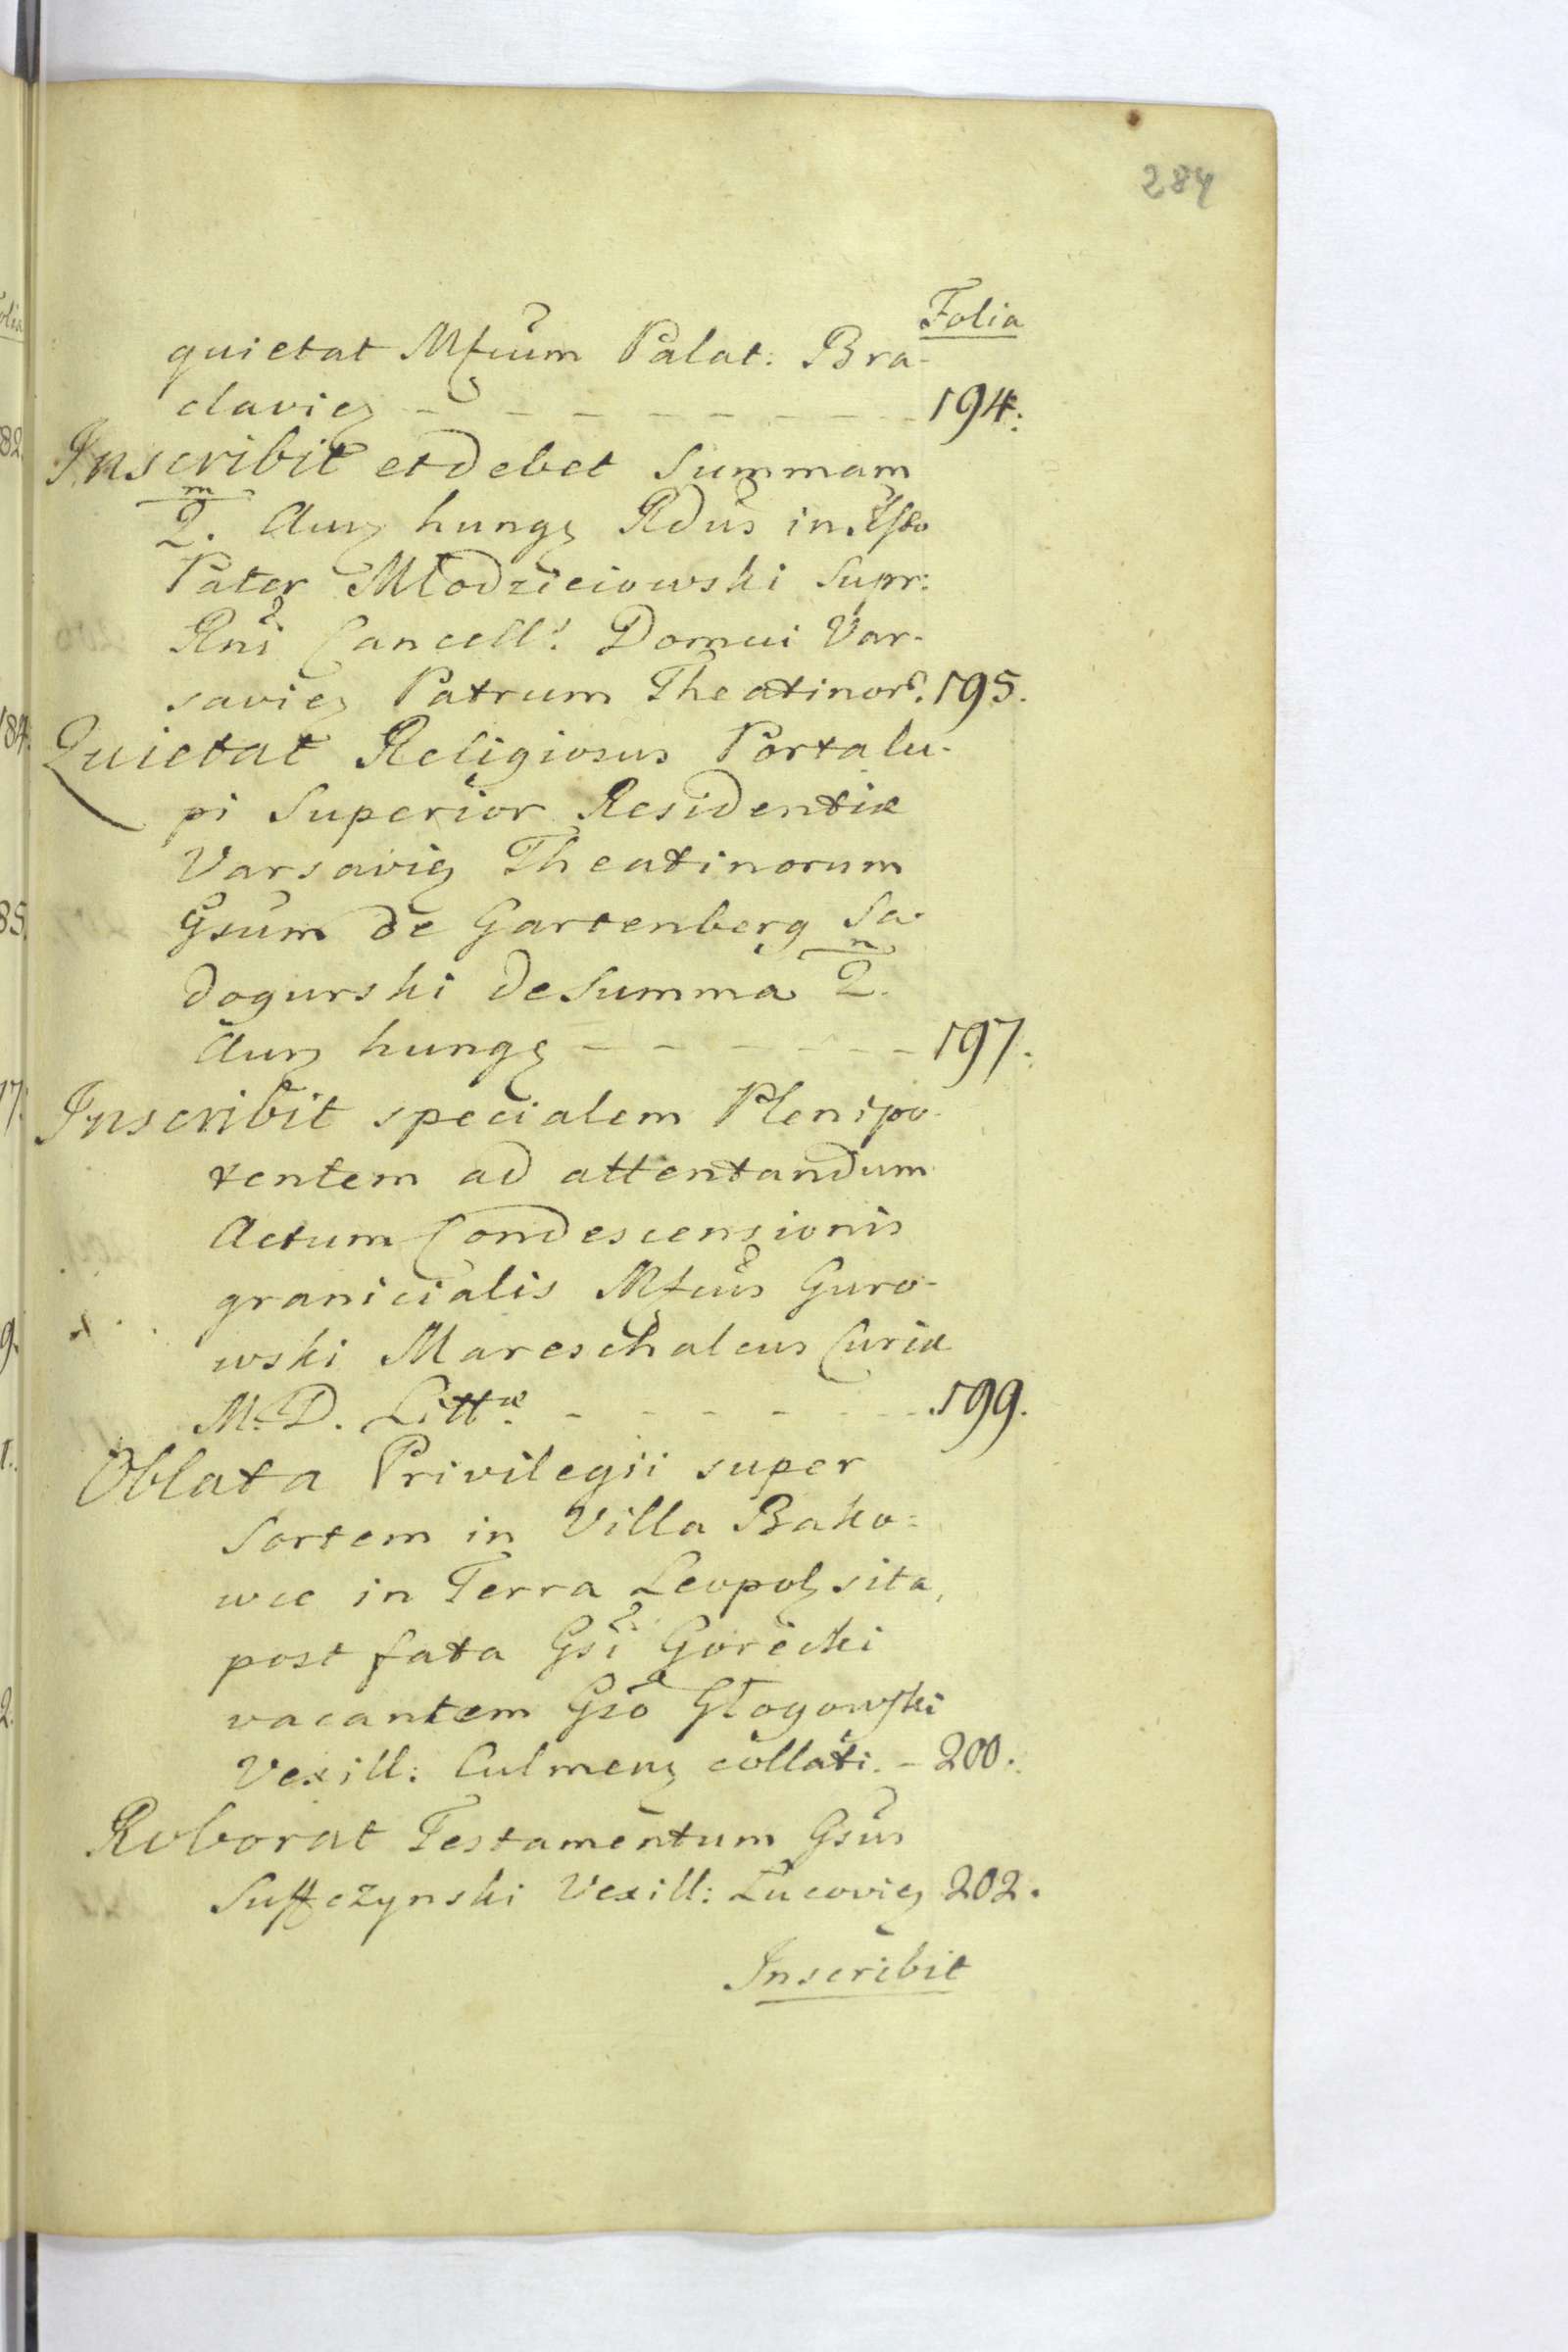 284
Folia
quietat Mfcum Palat: Bra-
claviesz - - - - - - - - 194.
Inscribit et debet Summam
2. m Aur hung Rdus in Xsto
Pater Młodzieiowski Supr:
Rni Cancell: Domui Var-
saviez Patrum Theatinor. 195.
Quietat Religiosus Portalu-
pi Superior Residentiæ
Varsaviez Theatinorum
Gsum de Gartenberg Sa-
dogurski de Summa 2. m
Aur hung - - - - - - - 197.
Inscribit specialem Plenipo-
tentem ad attentandum
Actum Condescensionis
granicialis Mfcus Guro-
wski Mareschalcus Curiæ
M. D. Littæ. - - - - - - 199.
Oblata Privilegii super
Sortem in Villa Bako-
wce in Terra Leopolz sita,
post fata Gsi Gorecki
vacantem Gso Głogowski
Vexill: Culmenz collati. - 200.
Roborat Testamentum Gsus
Suffczynski Vexill: Lucoviez 202.
Inscribit